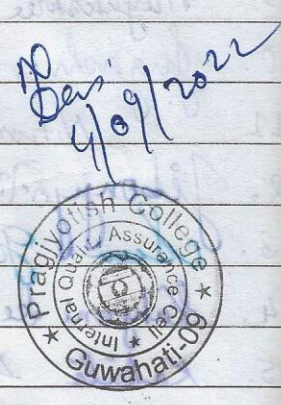 4/09/2022
Pragjyotish College
Internal Quality Assurance Cell
Guwahati-09